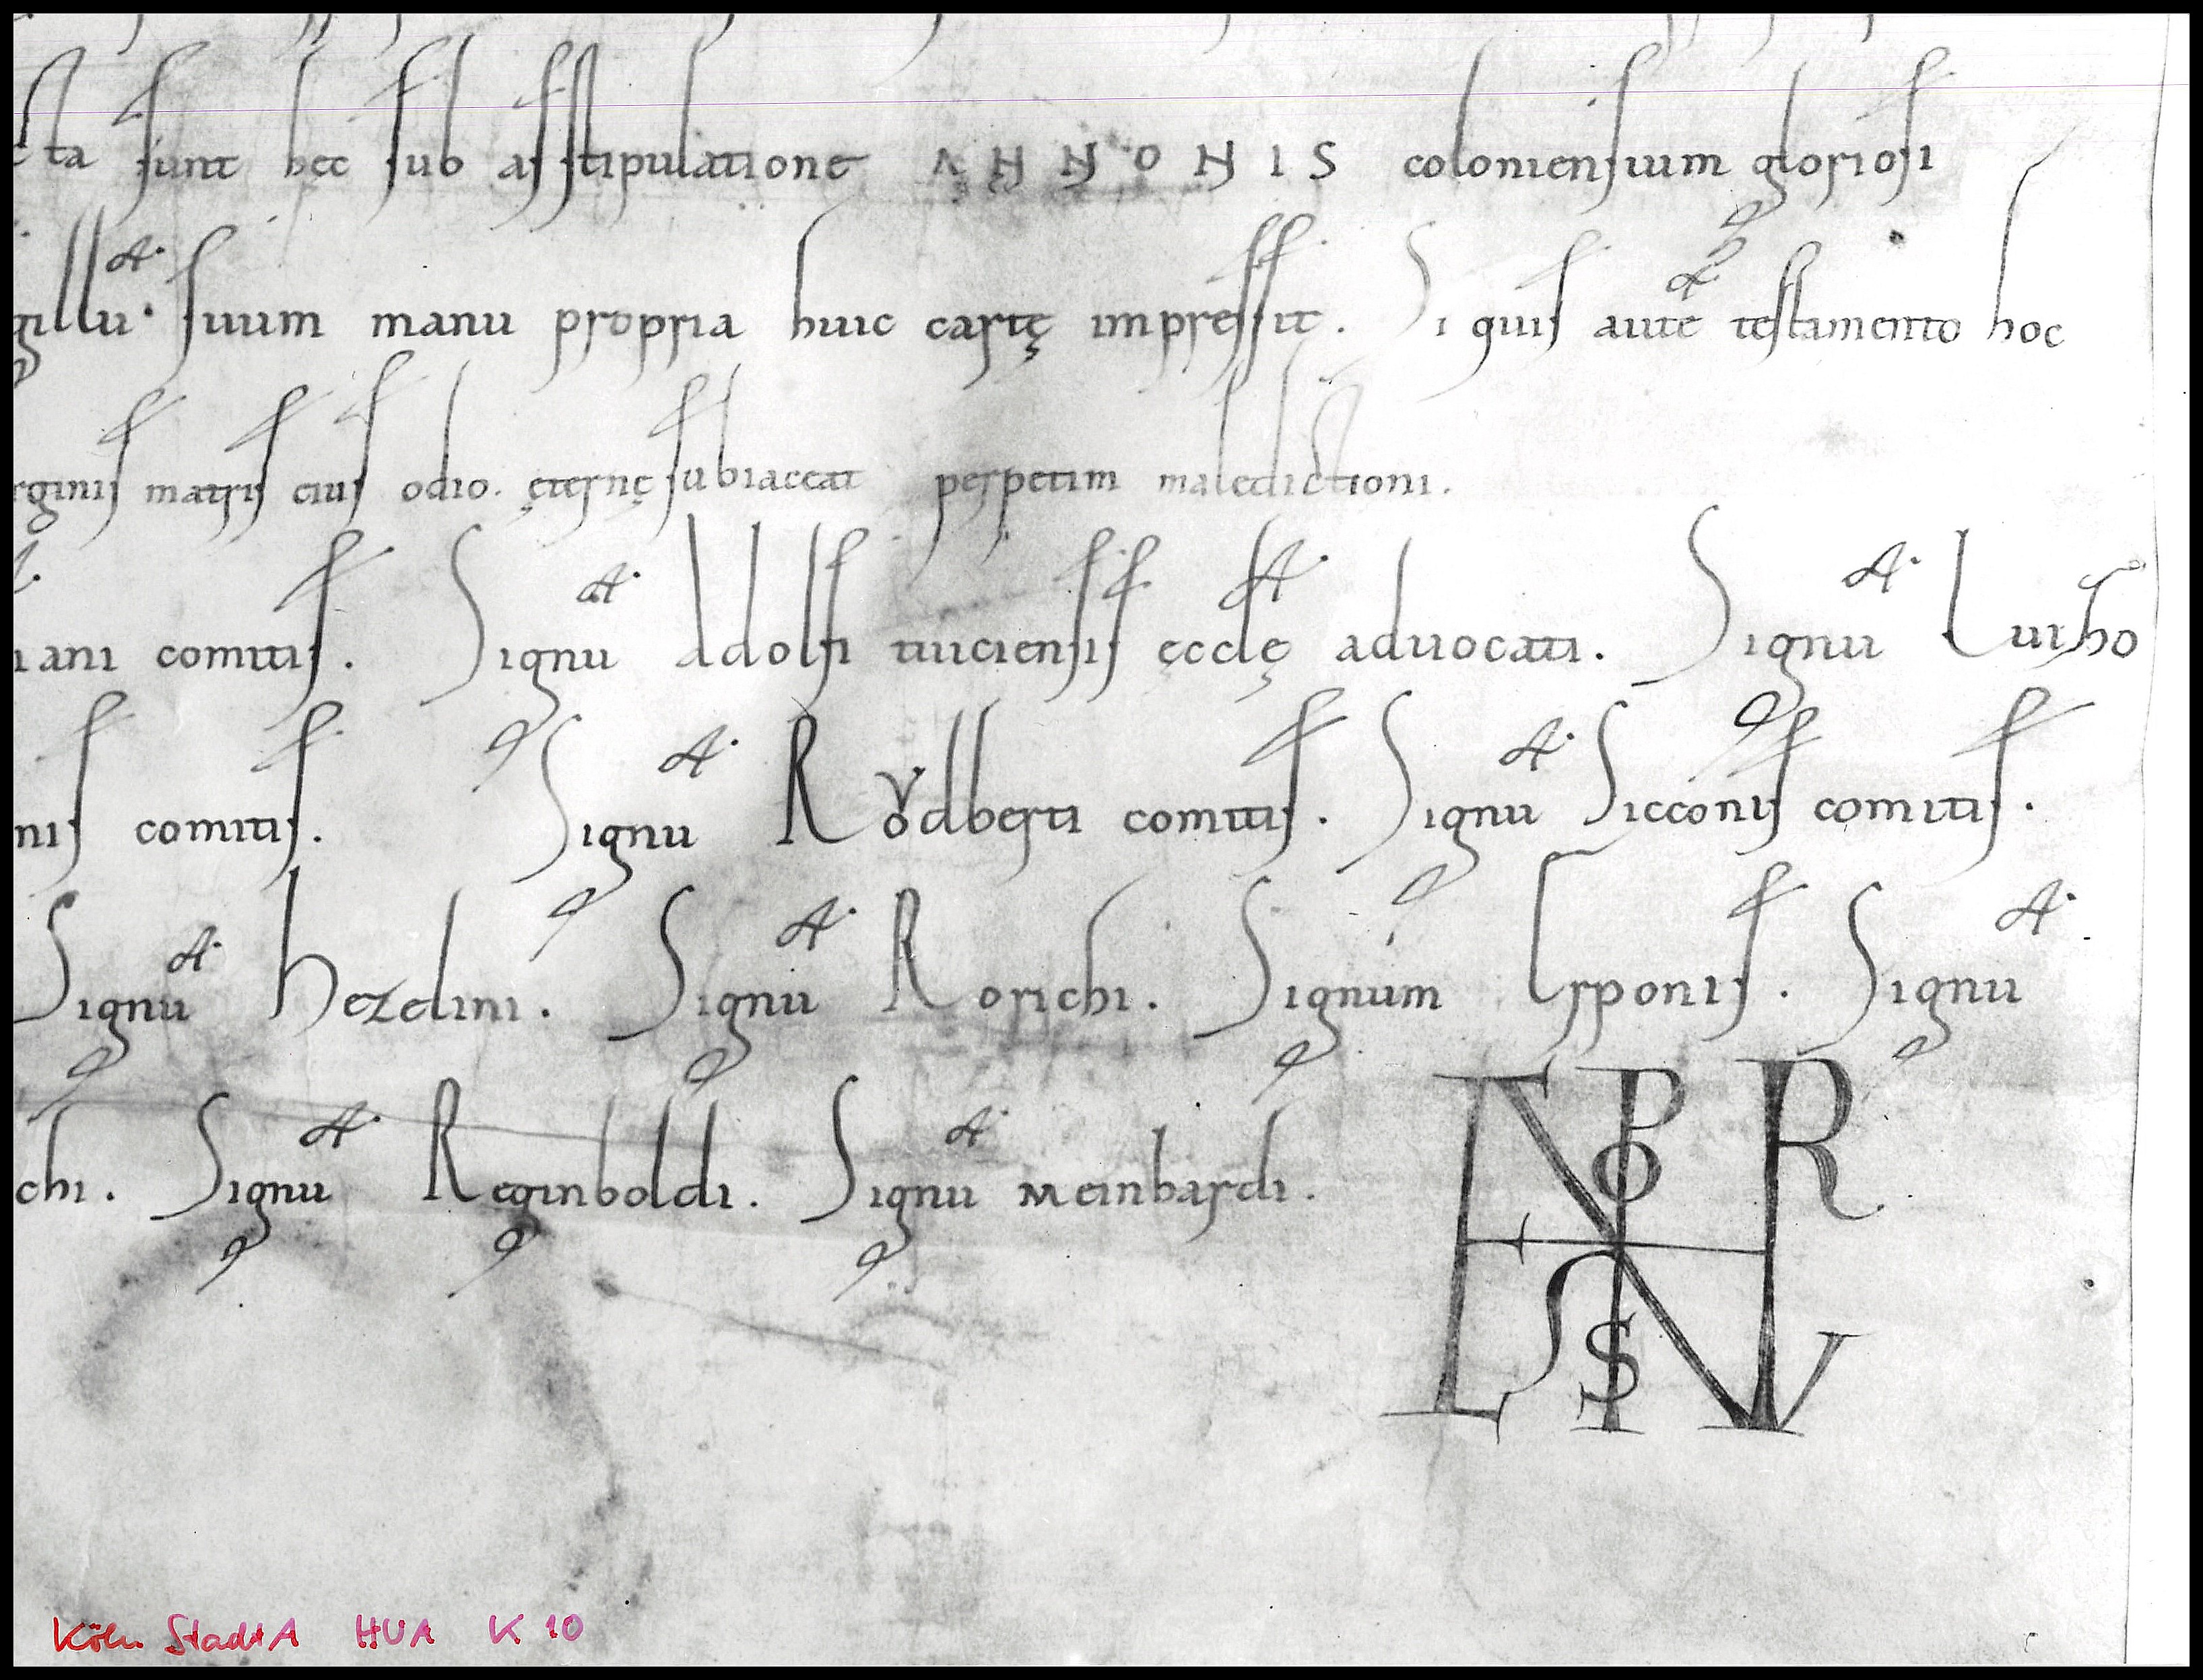 cta sunt hęc sub asstipulatione ANNONIS coloniensium gloriosi
gillũ suum manu propria huic cartę impressit. Si quis autẽ testamento hoc
rginis matris eius odio. ęternę subiaceat perpetim maledictioni.
iani comitis. Signũ Adolfi tuiciensis ęcclę aduocati. Signũ
nis comitis. Signũ Rovdberti comitis. Signũ Sicconis comitis.
Signũ Hezelini. Signũ Rorichi. Signum Erponis. Signũ
chi. Signũ Reginboldi. Signũ Meinhardi.
Köln StadtA HUA K 10